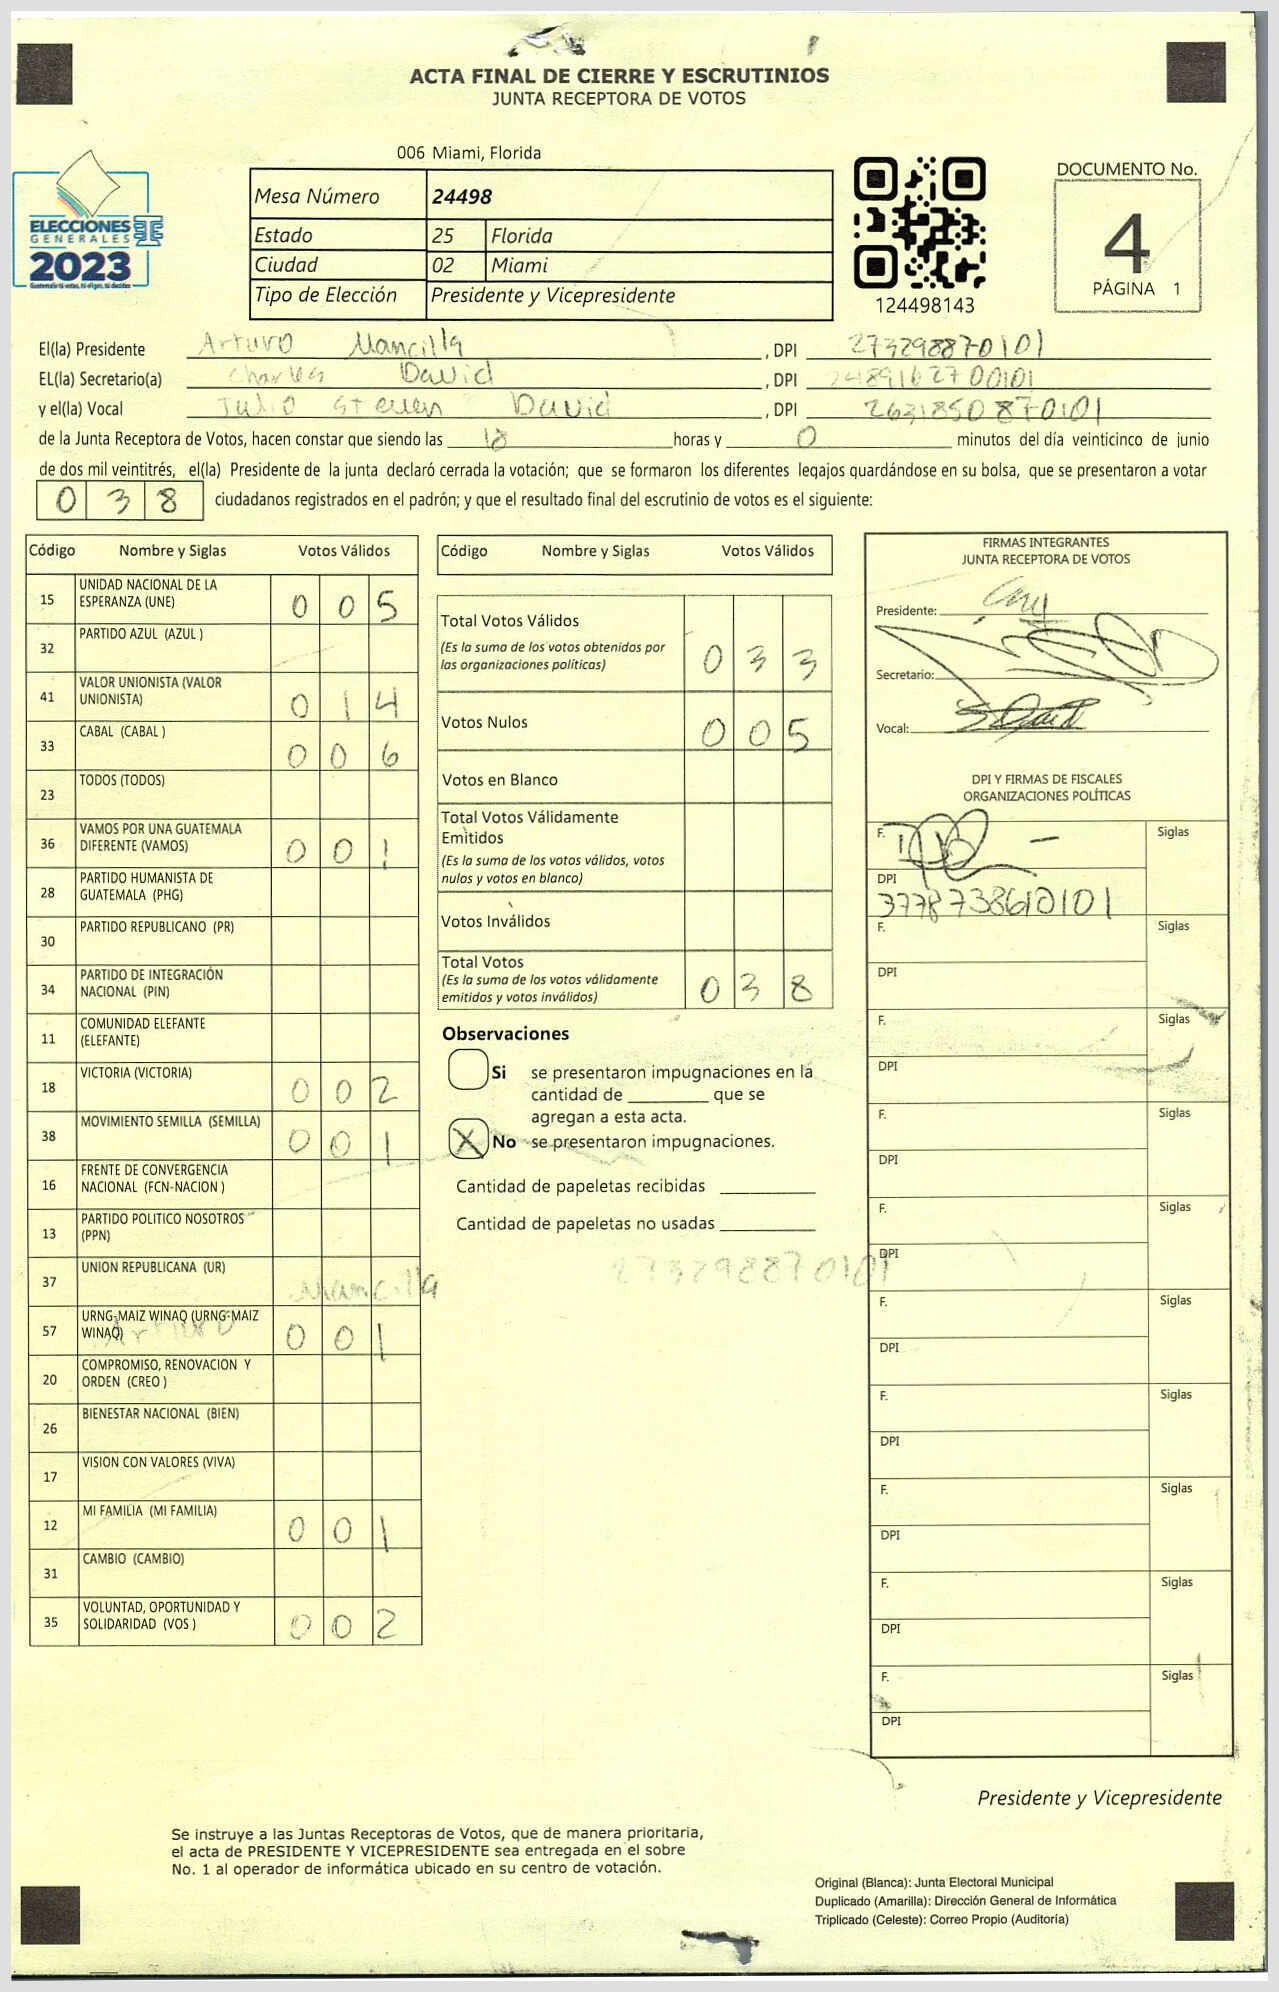 ACTA FINAL DE CIERRE Y ESCRUTINIOS
JUNTA RECEPTORA DE VOTOS
006 Miami, Florida
ELECCIONES
GENERALES
2023
Guatemala tú votas, tú eliges, tú decides
Mesa Número 24498
Estado 25 Florida
Ciudad 02 Miami
Tipo de Elección Presidente y Vicepresidente
124498143
DOCUMENTO No.
4
PÁGINA 1
El(la) Presidente Arturo Mancilla , DPI 273298870101
EL(la) Secretario(a) Charles David , DPI
y el(la) Vocal Julio Steven David , DPI 2631850870101
de la Junta Receptora de Votos, hacen constar que siendo las 18 horas y 0 minutos del día veinticinco de junio
de dos mil veintitrés, el(la) Presidente de la junta declaró cerrada la votación; que se formaron los diferentes legajos quardándose en su bolsa, que se presentaron a votar
0 3 8 ciudadanos registrados en el padrón; y que el resultado final del escrutinio de votos es el siguiente:
Código Nombre y Siglas Votos Válidos
15 UNIDAD NACIONAL DE LA
ESPERANZA (UNE) 0 0 5
32 PARTIDO AZUL (AZUL )
41 VALOR UNIONISTA (VALOR
UNIONISTA) 0 1 4
33 CABAL (CABAL ) 0 0 6
23 TODOS (TODOS)
36 VAMOS POR UNA GUATEMALA
DIFERENTE (VAMOS) 0 0 1
28 PARTIDO HUMANISTA DE
GUATEMALA (PHG)
30 PARTIDO REPUBLICANO (PR)
34 PARTIDO DE INTEGRACIÓN
NACIONAL (PIN)
11 COMUNIDAD ELEFANTE
(ELEFANTE)
18 VICTORIA (VICTORIA) 0 0 2
38 MOVIMIENTO SEMILLA (SEMILLA) 0 0 1
16 FRENTE DE CONVERGENCIA
NACIONAL (FCN-NACION )
13 PARTIDO POLITICO NOSOTROS
(PPN)
37 UNION REPUBLICANA (UR)
Mancilla
57 URNG-MAIZ WINAQ (URNG-MAIZ
WINAQ) 0 0 1
Arturo
20 COMPROMISO, RENOVACION Y
ORDEN (CREO )
26 BIENESTAR NACIONAL (BIEN)
17 VISION CON VALORES (VIVA)
12 MI FAMILIA (MI FAMILIA) 0 0 1
31 CAMBIO (CAMBIO)
35 VOLUNTAD, OPORTUNIDAD Y
SOLIDARIDAD (VOS ) 0 0 2
Código Nombre y Siglas Votos Válidos
Total Votos Válidos
(Es la suma de los votos obtenidos por
las organizaciones políticas) 0 3 3
Votos Nulos 0 0 5
Votos en Blanco
Total Votos Válidamente
Emitidos
(Es la suma de los votos válidos, votos
nulos y votos en blanco)
Votos Inválidos
Total Votos
(Es la suma de los votos válidamente
emitidos y votos inválidos) 0 3 8
Observaciones
Si se presentaron impugnaciones en la
cantidad de ________ que se
agregan a esta acta.
X No se presentaron impugnaciones.
Cantidad de papeletas recibidas ________
Cantidad de papeletas no usadas ________
273298870101
FIRMAS INTEGRANTES
JUNTA RECEPTORA DE VOTOS
Presidente:
Secretario:
Vocal:
DPI Y FIRMAS DE FISCALES
ORGANIZACIONES POLÍTICAS
F. Siglas
DPI
3778738610101
F. Siglas
DPI
F. Siglas
DPI
F. Siglas
DPI
F. Siglas
DPI
F. Siglas
DPI
F. Siglas
DPI
F. Siglas
DPI
F. Siglas
DPI
F. Siglas
DPI
Presidente y Vicepresidente
Se instruye a las Juntas Receptoras de Votos, que de manera prioritaria,
el acta de PRESIDENTE Y VICEPRESIDENTE sea entregada en el sobre
No. 1 al operador de informática ubicado en su centro de votación.
Original (Blanca): Junta Electoral Municipal
Duplicado (Amarilla): Dirección General de Informática
Triplicado (Celeste): Correo Propio (Auditoría)